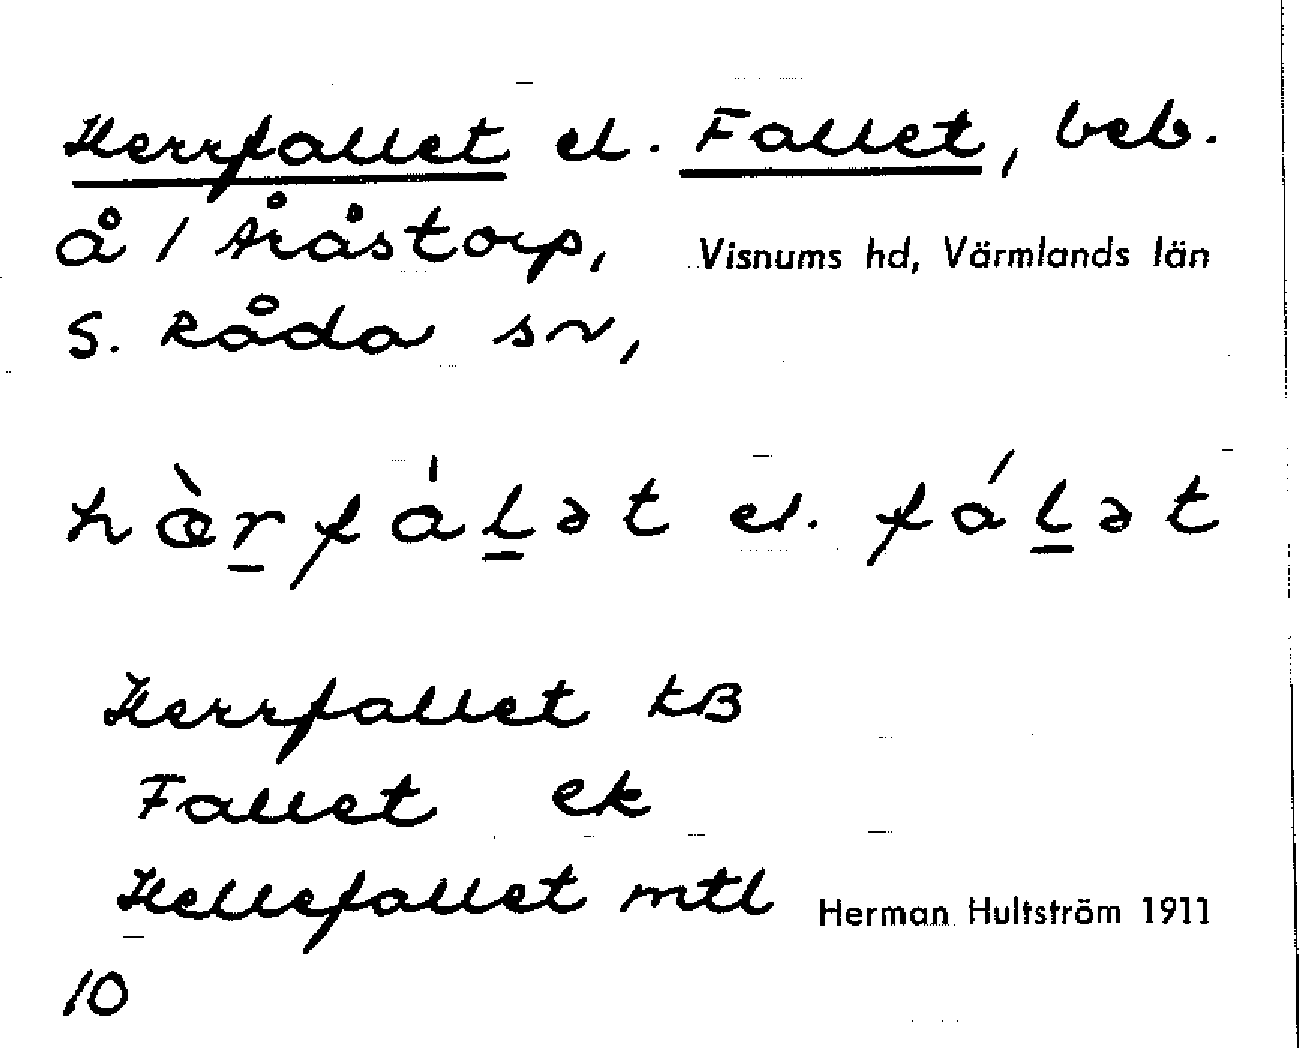 Herrfallet el. Fallet, beb.
å 1 Åråstorp, Visnums hd, Värmlands län
S. Råda sn,
hæ̀r̠fàl̠ət el. fál̠ət
Herrfallet kB
Fallet ek
Hellefallet mtl Herman Hultström 1911
10